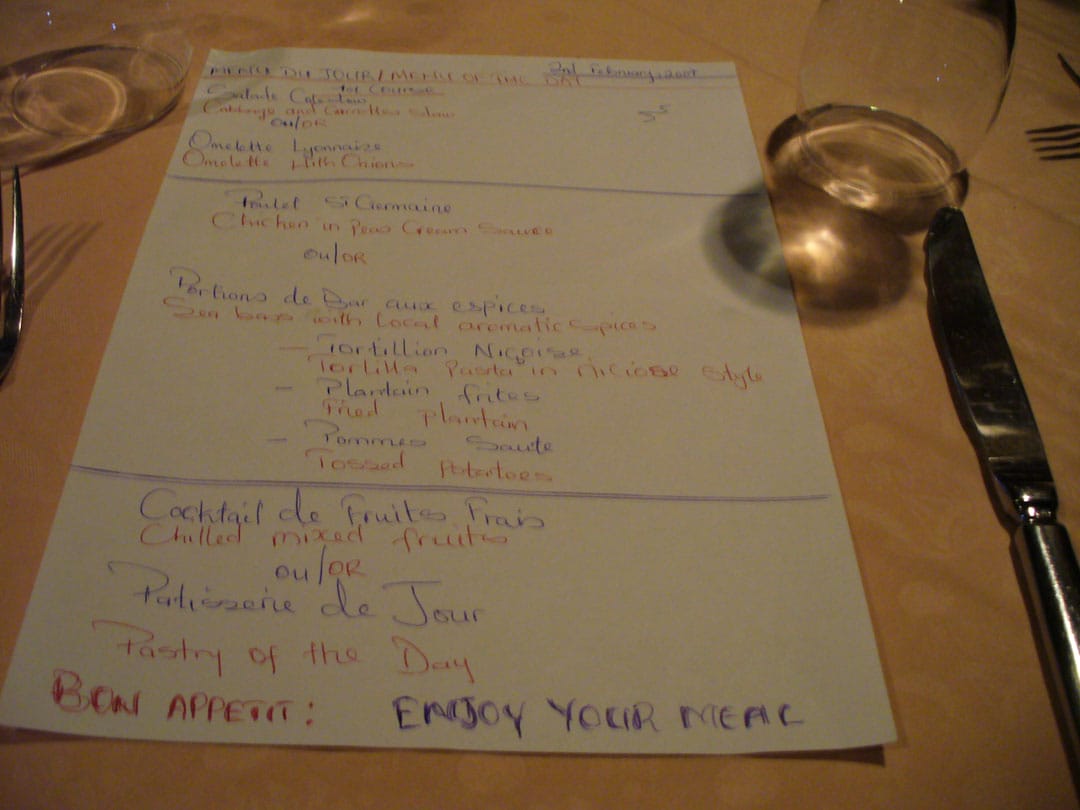 MENU DU JOUR/MENU OF THE DAY 2nd February, 2009
1st COURSE
Salade
Cabbage and Carrottes Slaw
OU/OR
Omelette Lyonnaize
Omelette With Onions
Poulet St Germaine
Chicken in Peas Cream Sauce
OU/OR
Portions de Bar aux espices
Sea bass with Local aromatic Spices
- Tortillion Niçoise
Tortilla Pasta in niciose Style
- Plantain frites
Fried plantain
- Pommes Saute
Tossed Potatoes
Cocktail de Fruites Frais
Chilled mixed fruits
OU/OR
Patisserie de Jour
Pastry of the Day
BON APPETIT: ENJOY YOUR MEAL